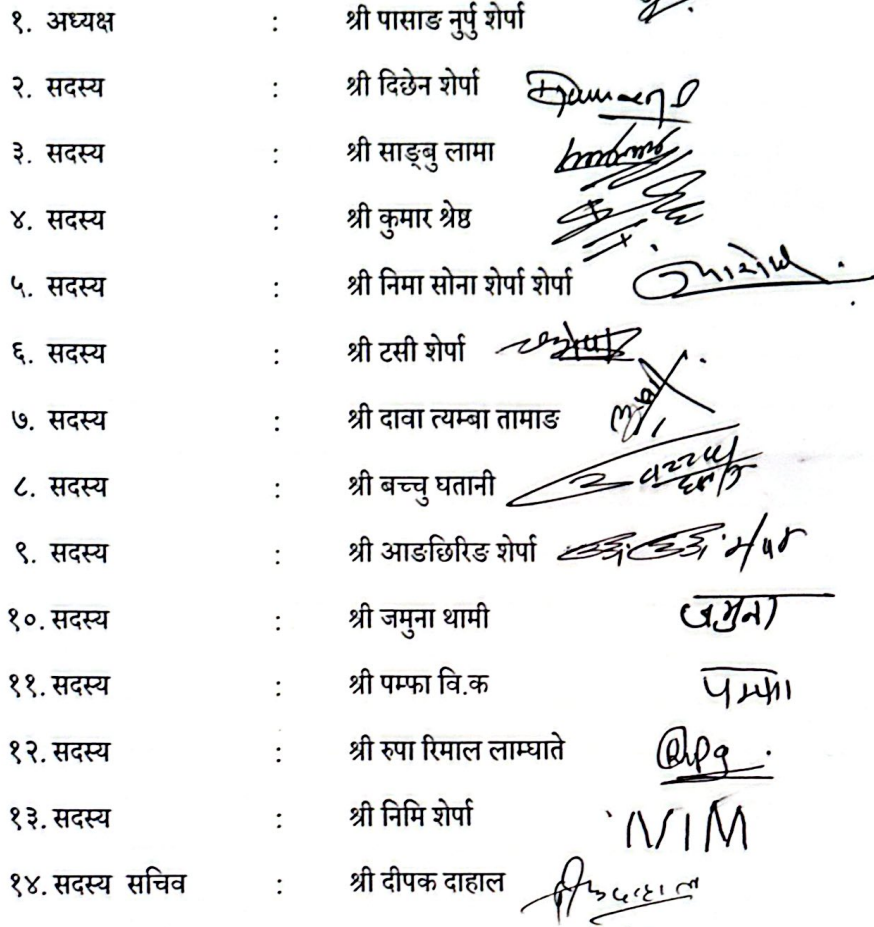 १. अध्यक्ष : श्री पासाङ नुर्पु शेर्पा
२. सदस्य : श्री दिछेन शेर्पा
३. सदस्य : श्री साङ्बु लामा
४. सदस्य : श्री कुमार श्रेष्ठ
५. सदस्य : श्री निमा सोना शेर्पा शेर्पा
६. सदस्य : श्री टसी शेर्पा
७. सदस्य : श्री दावा त्यम्बा तामाङ
८. सदस्य : श्री बच्चु घतानी
९. सदस्य : श्री आङछिरिङ शेर्पा
१०. सदस्य : श्री जमुना थामी जमुना
११. सदस्य : श्री पम्फा वि.क पम्फा
१२. सदस्य : श्री रुपा रिमाल लाम्घाते
१३. सदस्य : श्री निमि शेर्पा NIM
१४. सदस्य सचिव : श्री दीपक दाहाल